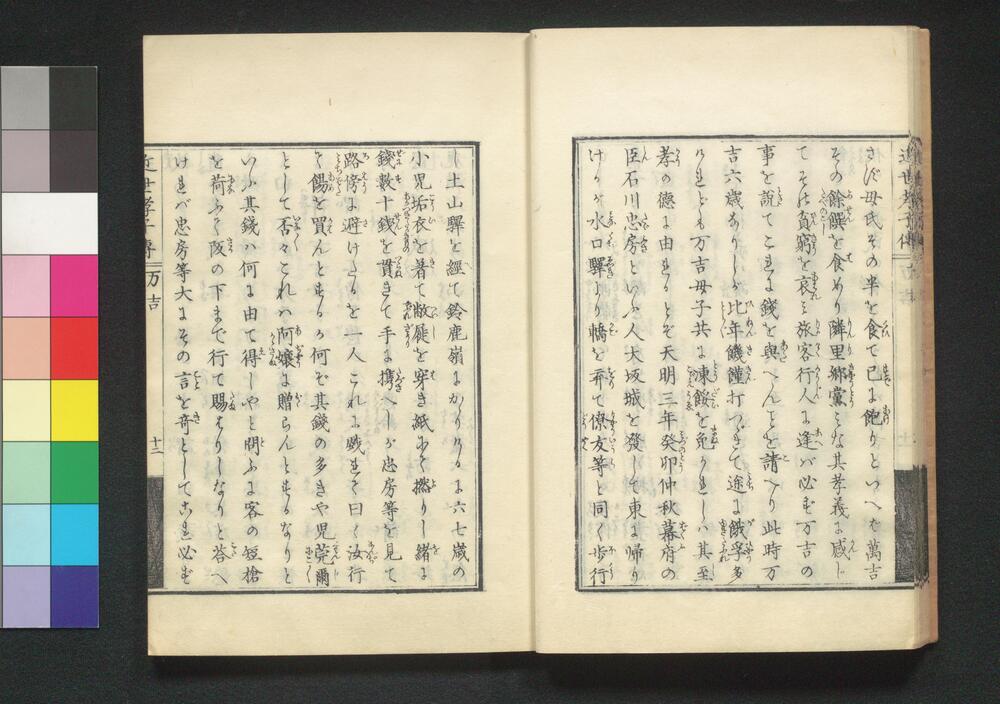 さバ母氏その半を食て已に飽りといへバ萬吉
その餘饌を食めり隣里郷黨ミな其孝義に感じ
てその貧窮を哀ミ旅客行人に逢バ必ず万吉の
事を説てこれに錢を與へんとを請へり此時万
吉六歳なりしが比年饑饉打つゞきて途に餓孚多
けれども万吉母子共に凍餒を免かれしハ其至
孝の德に由れるとぞ天明三年癸卯仲秋幕府の
臣石川忠房といふ人大坂城を發して東に帰り
けるが水口驛より轎を弃て僚友等と同く歩行
し土山驛を經て鈴鹿嶺にかゝりけるに六七歳の
小児垢衣を著て敝屣を穿き紙にて撚りし緒に
錢數十錢を貫きて手に携へしが忠房等を見て
路傍に避けたるを一人これに戯れて曰く汝行
て餳を買んとするか何ぞ其錢の多きや児莞爾
として否々これハ阿嬢に贈らんとするなりと
いふ其錢ハ何に由て得しやと問ふに客の短槍
を荷ふて阪の下まで行て賜ハりしなりと答へ
けれバ忠房等大にその言を奇としてこれ必ず
近世孝子傳
万吉
十二